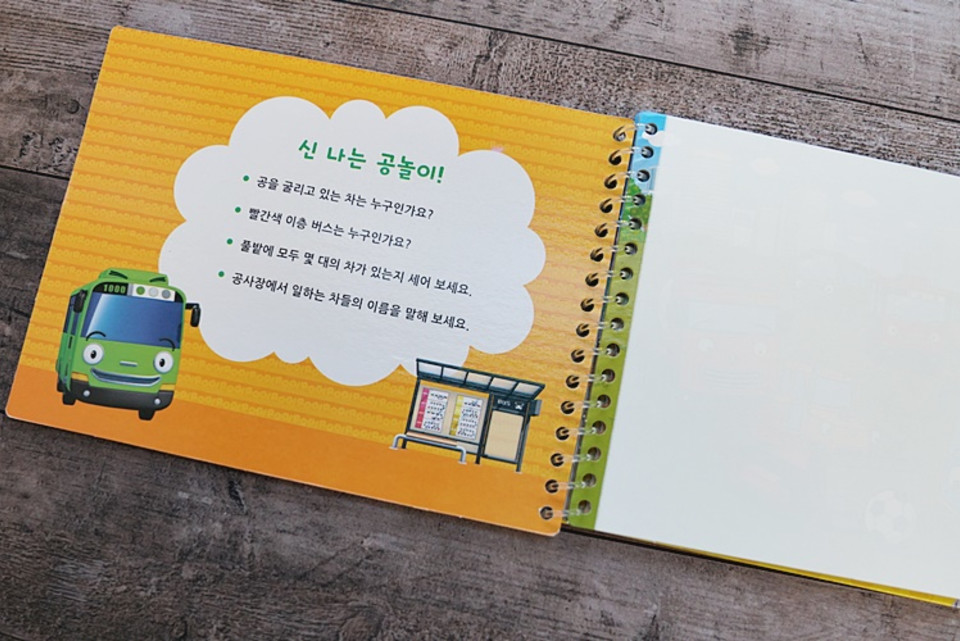 신 나는 공놀이!
공을 굴리고 있는 차는 누구인가요?
빨간색 이층 버스는 누구인가요?
풀밭에 모두 몇 대의 차가 있는지 세어 보세요.
공사장에서 일하는 차들의 이름을 말해 보세요.
1000
BUS